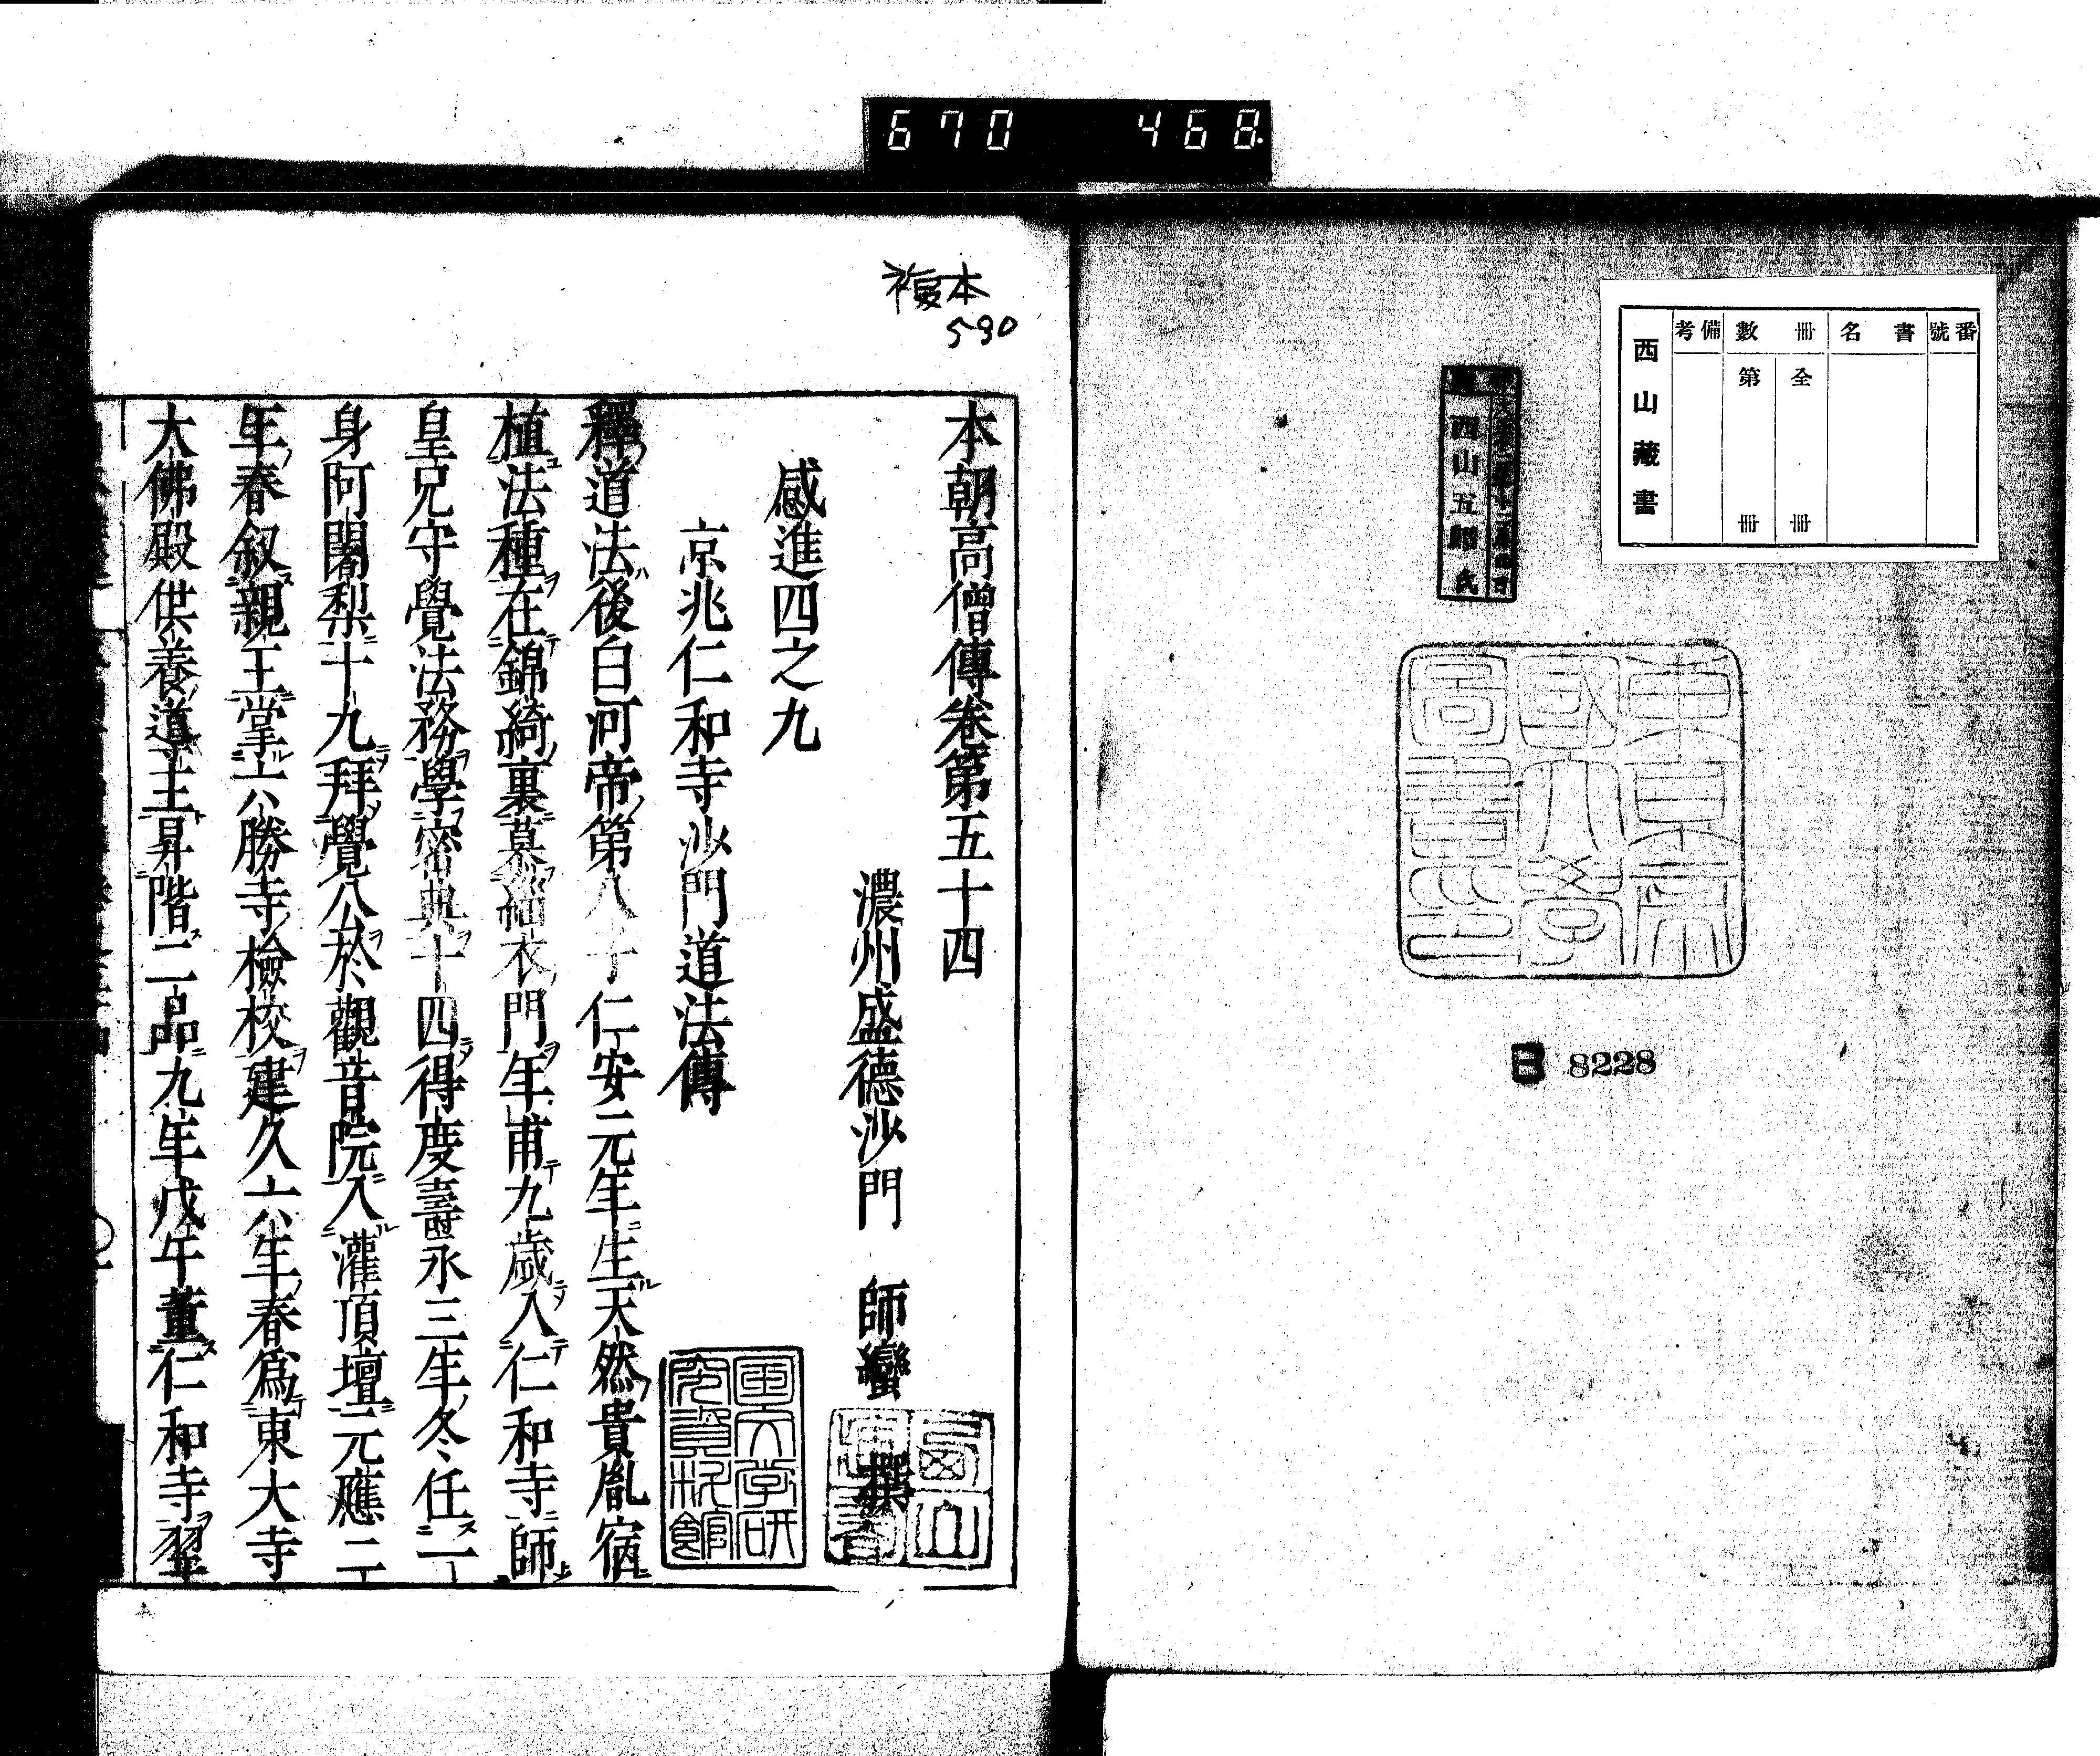 670 468
番號
書名
冊數
全 冊
第 冊
備考
西山藏書
西山五郎氏
東京帝國大學圖書之印
8228
複本
590
本朝高僧傳卷第五十四
濃州盛德沙門 師蠻 撰
感進四之九
京兆仁和寺沙門道法傳
釋道法後白河帝第八子仁安元年生天然貴胤宿
植法種在錦綺裏慕緇衣門年甫九歲入仁和寺師
皇兄守覺法務學密典十四得度壽永三年冬任一
身阿闍梨十九拜覺公於觀音院入灌頂壇元應二
年春叙親王掌六勝寺檢校建久六年春爲東大寺
大佛殿供養導主昇階二品九年戊午董仁和寺翠